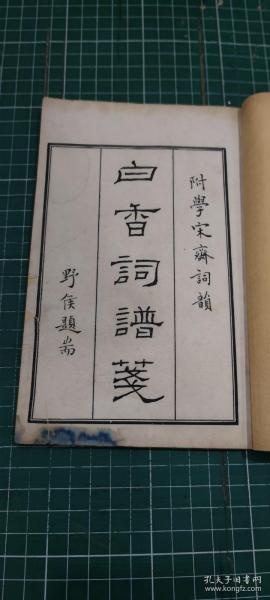 附學宋齋詞韻
白香詞譜箋
野侯題耑
孔夫子旧书网